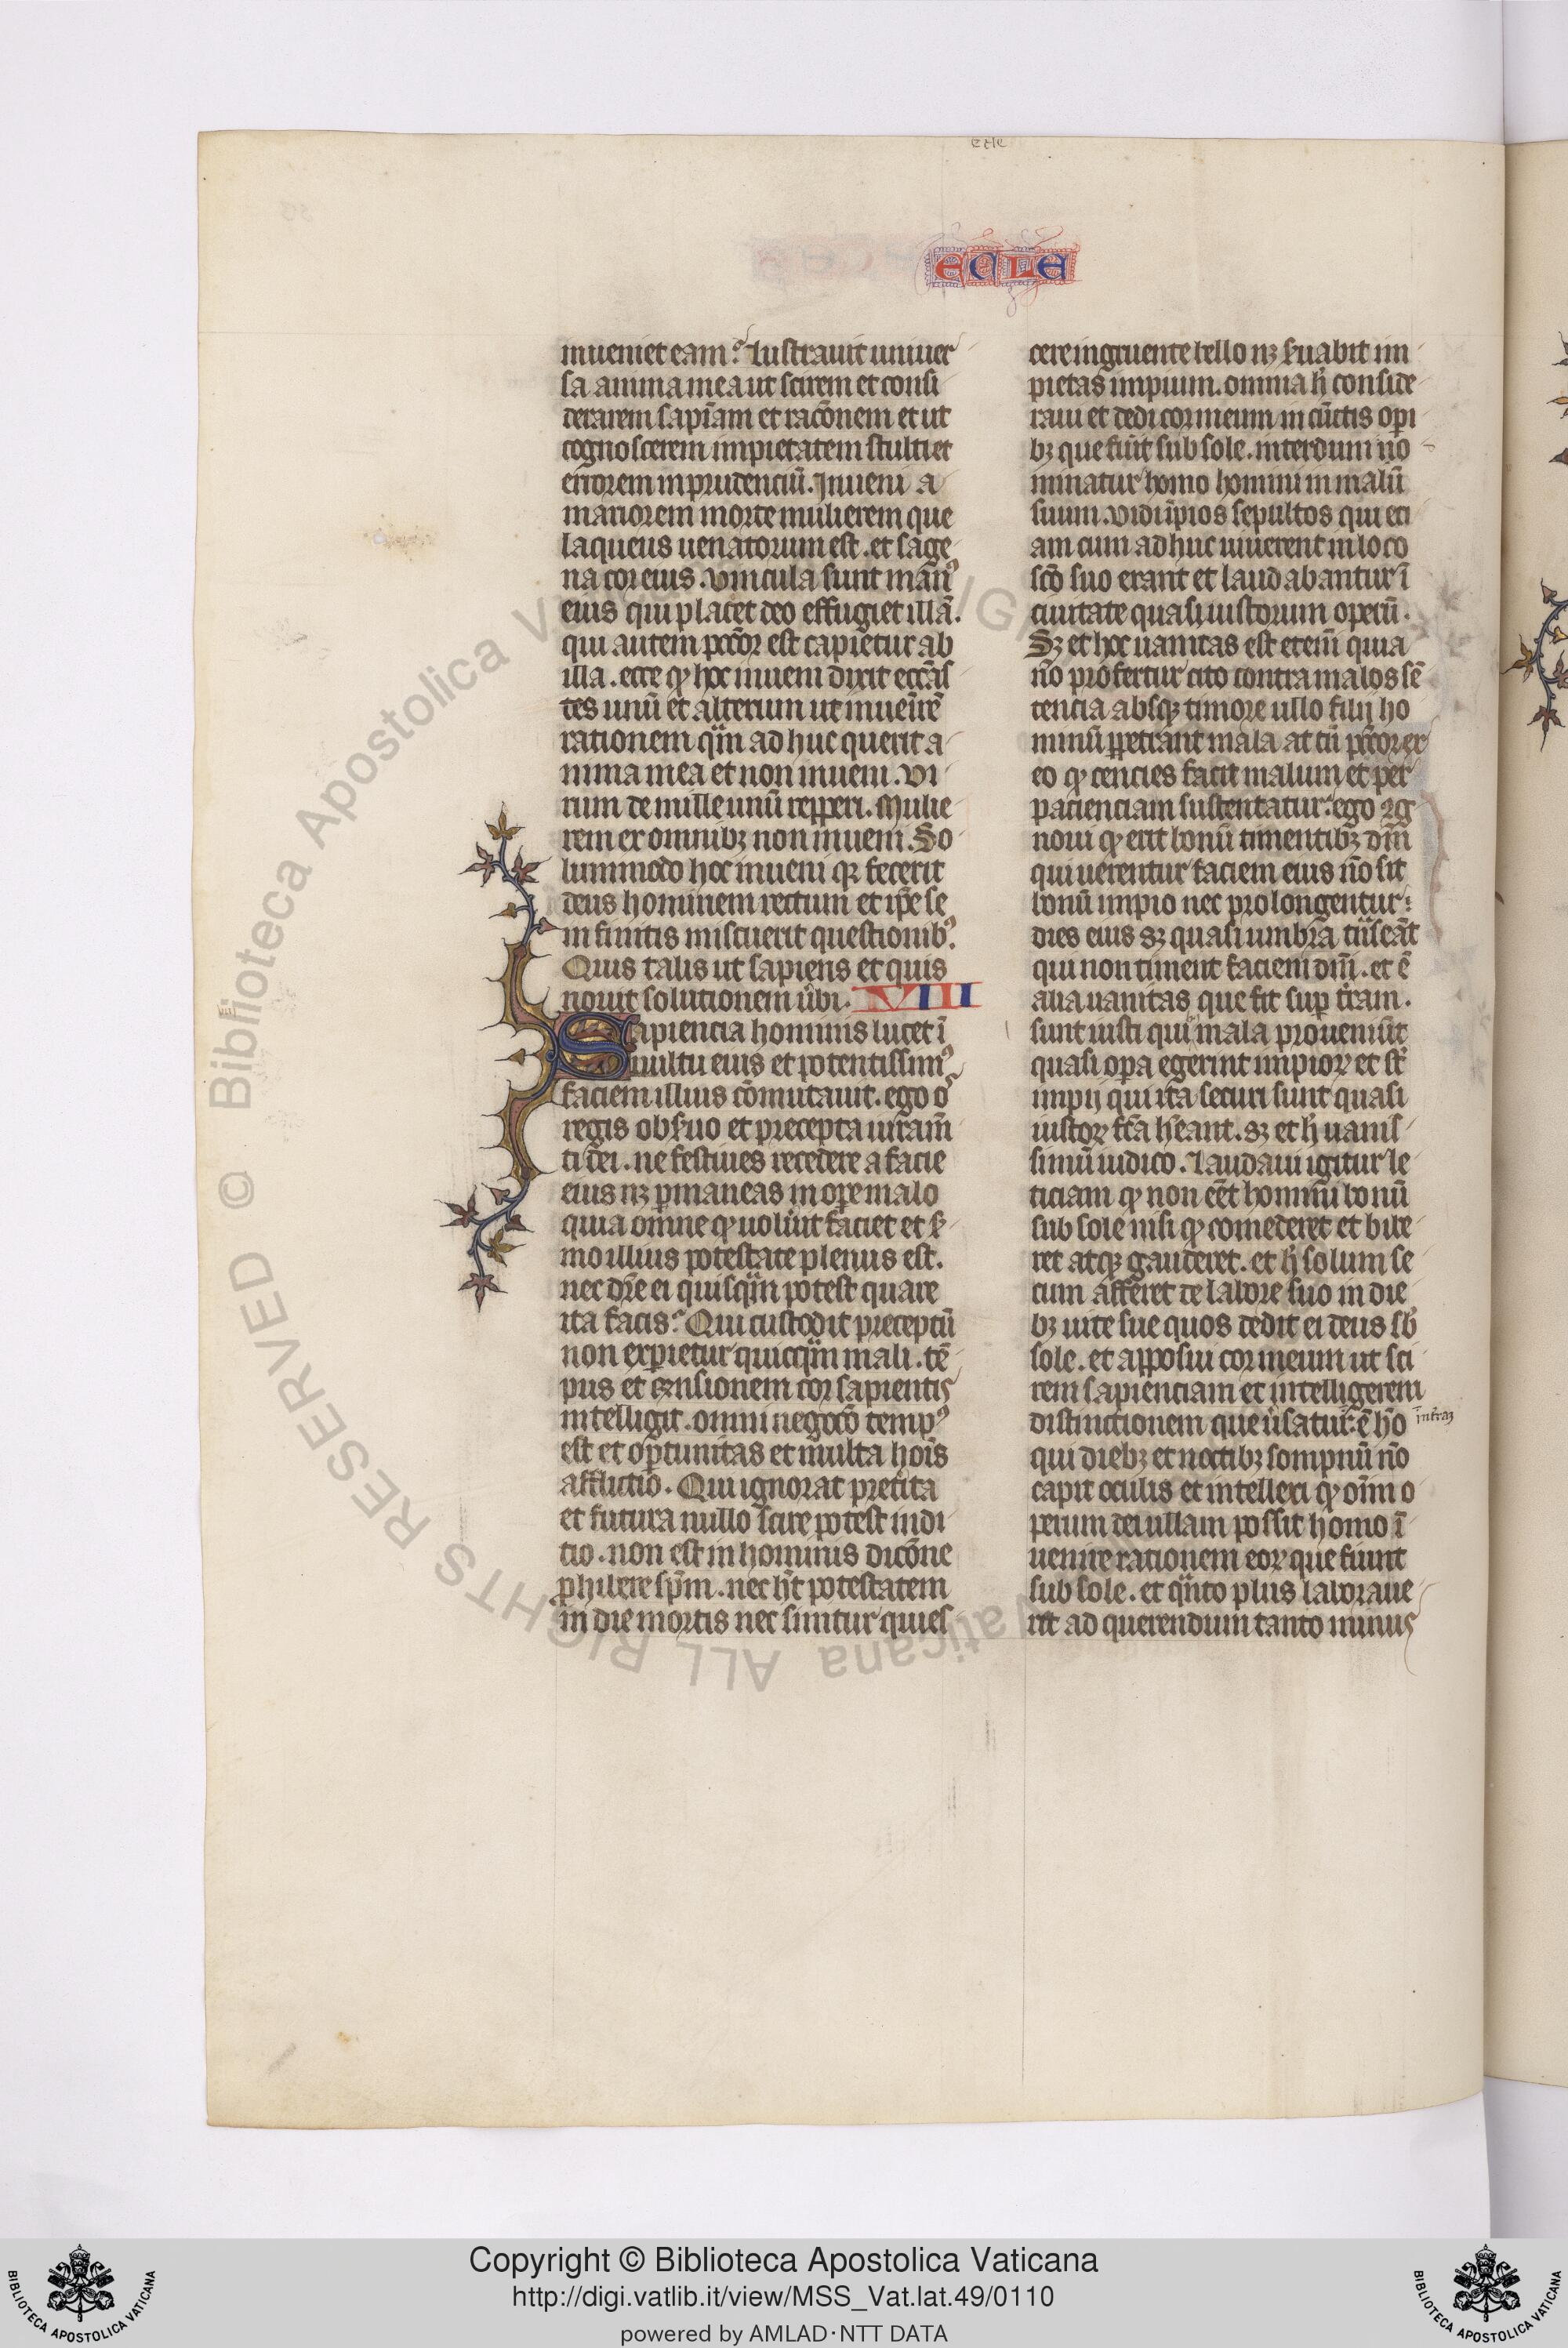 ECLE
inueniet eam? Lustrauit uniuer
sa anima mea ut scirem et consi
derarem sapiam et racōnem et ut
cognoscerem impietatem stulti et
errorem inprudenciū. Inueni a
mariorem morte mulierem que
laqueus uenatorum est. et sage
na cor eius. Vincula sunt manꝰ
eius qui placet deo effugiet illā.
qui autem pccōr est capietur ab
illa. ecce ꝙ hoc inueni dixit eccās
tes unū et alterum ut inueīrē
rationem qm̄ ad huc querit a
nima mea et non inueni. Vi
rum de mille unū repperi. Mulie
rem ex omnibꝫ non inueni. So
lummodo hoc inueni qꝫ fecerit
deus hominem rectum et ip̄e se
infinitis miscuerit questionibꝰ.
Quis talis ut sapiens et quis
nouit solutionem ūbi. VIII
Sapiencia hominis lucet ī
uultu eius et potentissimꝰ
faciem illius cōmutauit. ego os
regis obſuo et precepta iuram̄
ti dei. ne festines recedere a facie
eius nꝫ ꝑmaneas in oꝑe malo
quia omne ꝙ uolūit faciet et ẜ
mo illius potestate plenus est.
nec dr̄e ei quisqm̄ potest quare
ita facis? Qui custodit preceptū
non exꝑietur quicqm̄ mali. tē
pus et rn̄sionem cor sapientis
intelligit. omni negoco tempꝰ
est et oꝑtunitas et multa hoīs
afflictio. Qui ignorat preťita
et futura nullo scire potest indi
tio. non est in hominis dicōne
ꝓhibere sp̄m. nec ht̄ potestatem
in die mortis nec sinitur quies
cere ingruente bello nꝫ ẜuabit im
pietas impium. omnia h̓ conside
raui et dedi cor meum in cūctis oꝑi
bꝫ que fiūt sub sole. interdum no
minatur homo homini in malū
suum. Vidi īpios sepultos qui eci
am cum ad huc uiuerent in loco
scō suo erant et laudabantur ī
ciuitate quasi iustorum operū.
Sꝫ et hoc uanitas est etenī quia
nō profertur cito contra malos sē
tencia absqꝫ timore ullo filij ho
minū ꝑpetrant mala at tn̄ pccōr ex
eo ꝙ cencies facit malum et per
pacienciam sustentatur. ego ꝯg
noui ꝙ erit bonū timentibꝫ dm̄
qui uerentur faciem eius nō sit
bonū impio nec prolongentur
dies eius sꝫ quasi umbra tn̄seāt
qui non timent faciem dm̄i. et ē
alia uanitas que fit suꝑ tr̄am.
sunt iusti qui mala proueniūt
quasi oꝑa egerint impioꝝ et st̄
impij qui ita securi sunt quasi
iustoꝝ fc̄a hēant. sꝫ et h̓ uanis
simū iudico. Laudaui igitur le
ticiam ꝙ non eēt homini bonū
sub sole nisi ꝙ comederet et bibe
ret atqꝫ gauderet. et h̓ solum se
cum afferret de labore suo in die
bꝫ uite sue quos dedit ei deus sb̓
sole. et apposui cor meum ut sci
rem sapienciam et intelligerem
distinctionem que ūsatur. ē hō in traꝫ
qui diebꝫ et noctibꝫ sompnū nō
capit oculis et intellexi ꝙ oīm o
perum dei ullam possit homo ī
uenire rationem eoꝝ que fiunt
sub sole. et qn̄to plus laboraue
rit ad querendum tanto minus
© Biblioteca Apostolica Vaticana ALL RIGHTS RESERVED
Copyright © Biblioteca Apostolica Vaticana
http://digi.vatlib.it/view/MSS_Vat.lat.49/0110
powered by AMLAD·NTT DATA
BIBLIOTECA APOSTOLICA VATICANA
BIBLIOTECA APOSTOLICA VATICANA